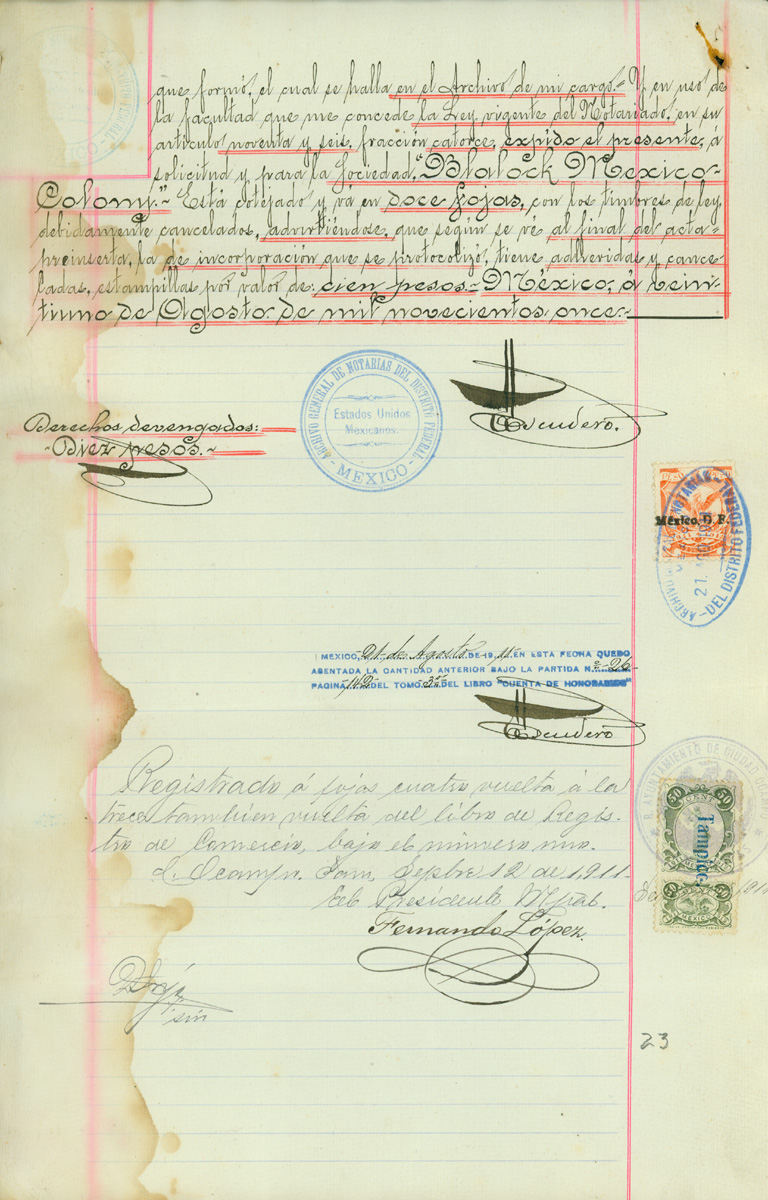 que formó, el cual se halla en el Archivo de mi cargo.= Y en uso de
la facultad que me concede la Ley vigente del Notariado, en su
artículo noventa y seis, fracción catorce, expido el presente, á
solicitud y para la Sociedad, "Blalock Mexico-
Colony."- Está cotejado y vá en doce fojas, con los timbres de ley,
debidamente cancelados, advirtiéndose, que según se vé al final del acta-
preinserta, la de incorporación que se protocolizó, tiene adheridas y cance-
ladas, estampillas por valor de: cien pesos.- México, á vein-
tiuno de Agosto de mil novecientos once.-
ARCHIVO GENERAL DE NOTARIAS DEL DISTRITO FEDERAL
Estados Unidos
Mexicanos.
-MEXICO-
Escudero.
Derechos devengados:
-Diez pesos.-
PESO
México, D. F.
21 AGO
DEL DISTRITO FEDERAL
MEXICO, 21 de Agosto DE 1911 EN ESTA FECHA QUEDO
ASENTADA LA CANTIDAD ANTERIOR BAJO LA PARTIDA N.º 26-
PAGINA 142 DEL TOMO 3º DEL LIBRO "CUENTA DE HONORARIOS"
Escudero
Registrado á fojas cuatro vuelta á la
trece tambien vuelta del libro de Regis-
tro de Comercio, bajo el número uno.
C. Ocampo. Tam, Septbre 12 de 1,911-
El Presidente Mpal.
Fernando López.
R. AYUNTAMIENTO DE CIUDAD OCAMPO
50 50
Tampico
50 50
MEXICO
23